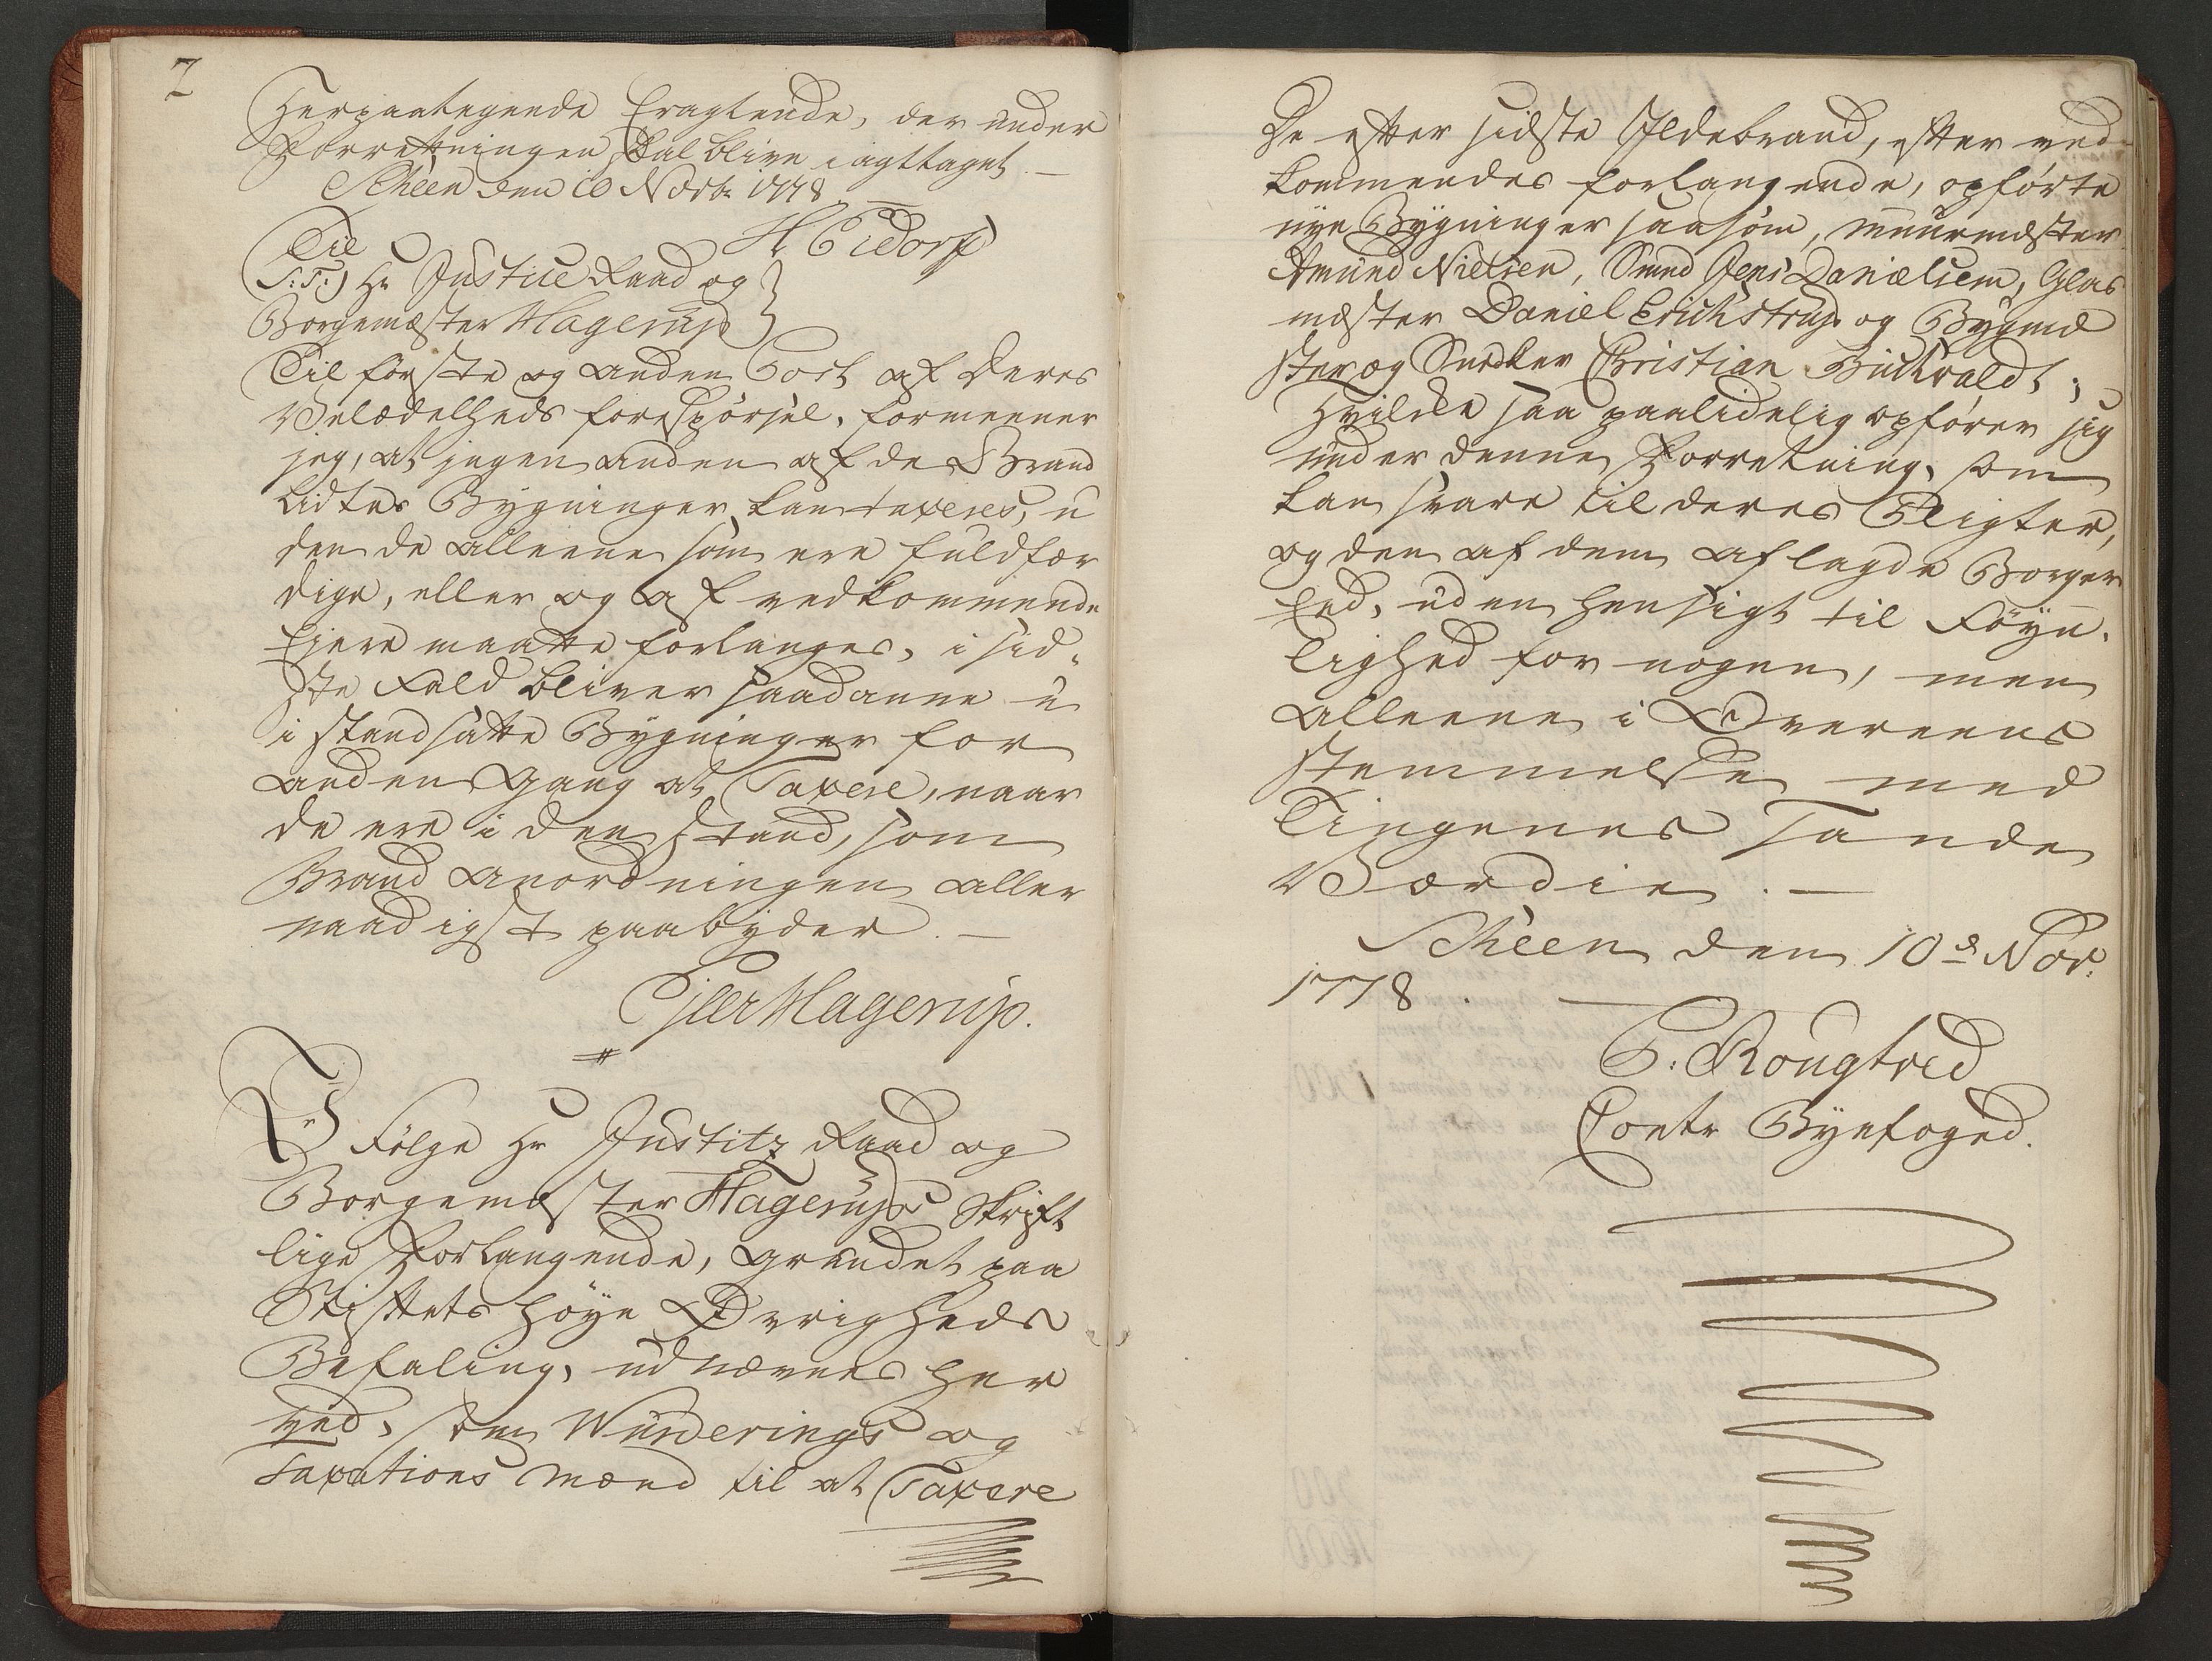 2
Herpaategnede Eragtende, der under
Forrettningen skal blive iagttaget. —
Scheen den 10 Novbr 1778
H. Eidorff
Til
S: T:) Hr Justice Raad og
Borgemæster Hagerup
Til förste og anden Post af Deres
Velædelheds forespörsel, formeener
jeg, at ingen anden af de Brand
Lidtes Bygninger kan taxeres, u
den de alleene som ere fuldfær
dige, eller og af vedkommende
Ejere maatte forlanges, i sid-
ste Fald bliver saadanne u
istandsatte Bygninger for
anden Gang at Taxere, naar
de ere i den Stand, som
Brand Anordningen aller
naadigst paabyder. —
Ejler Hagerup.
I Fölge Hr Justitz Raad og
Borgemæster Hagerups Skrift
lige Forlangende, grundet paa
Stiftets höye Øvrigheds
Befaling, udnævnes her
ved, som Wurderings og
Taxations Mænd til at Taxere
De efter sidste Ildebrand, efter ved-
kommendes forlangende, opförte
nye Bygninger saasom, Muurmæster
Amund Nielsen, Smed Jens Danielsen, Glas
mæster Daniel Erichstrup og Bygmæ
ster og Snedker Christian Buchwaldt;
Hvilke saa paalidelig opförer sig
under denne Forretning, som
kan svare til deres Pligter,
og den af dem aflagde Borger
Eed, uden hensigt til Föye-
lighed for nogen, men
alleene i Overeens
stemmelse med
Tingenes Sande
Værdie. —
Scheen den 10de Nov:
1778. —
C. Rougtved
Const: Byefoged.